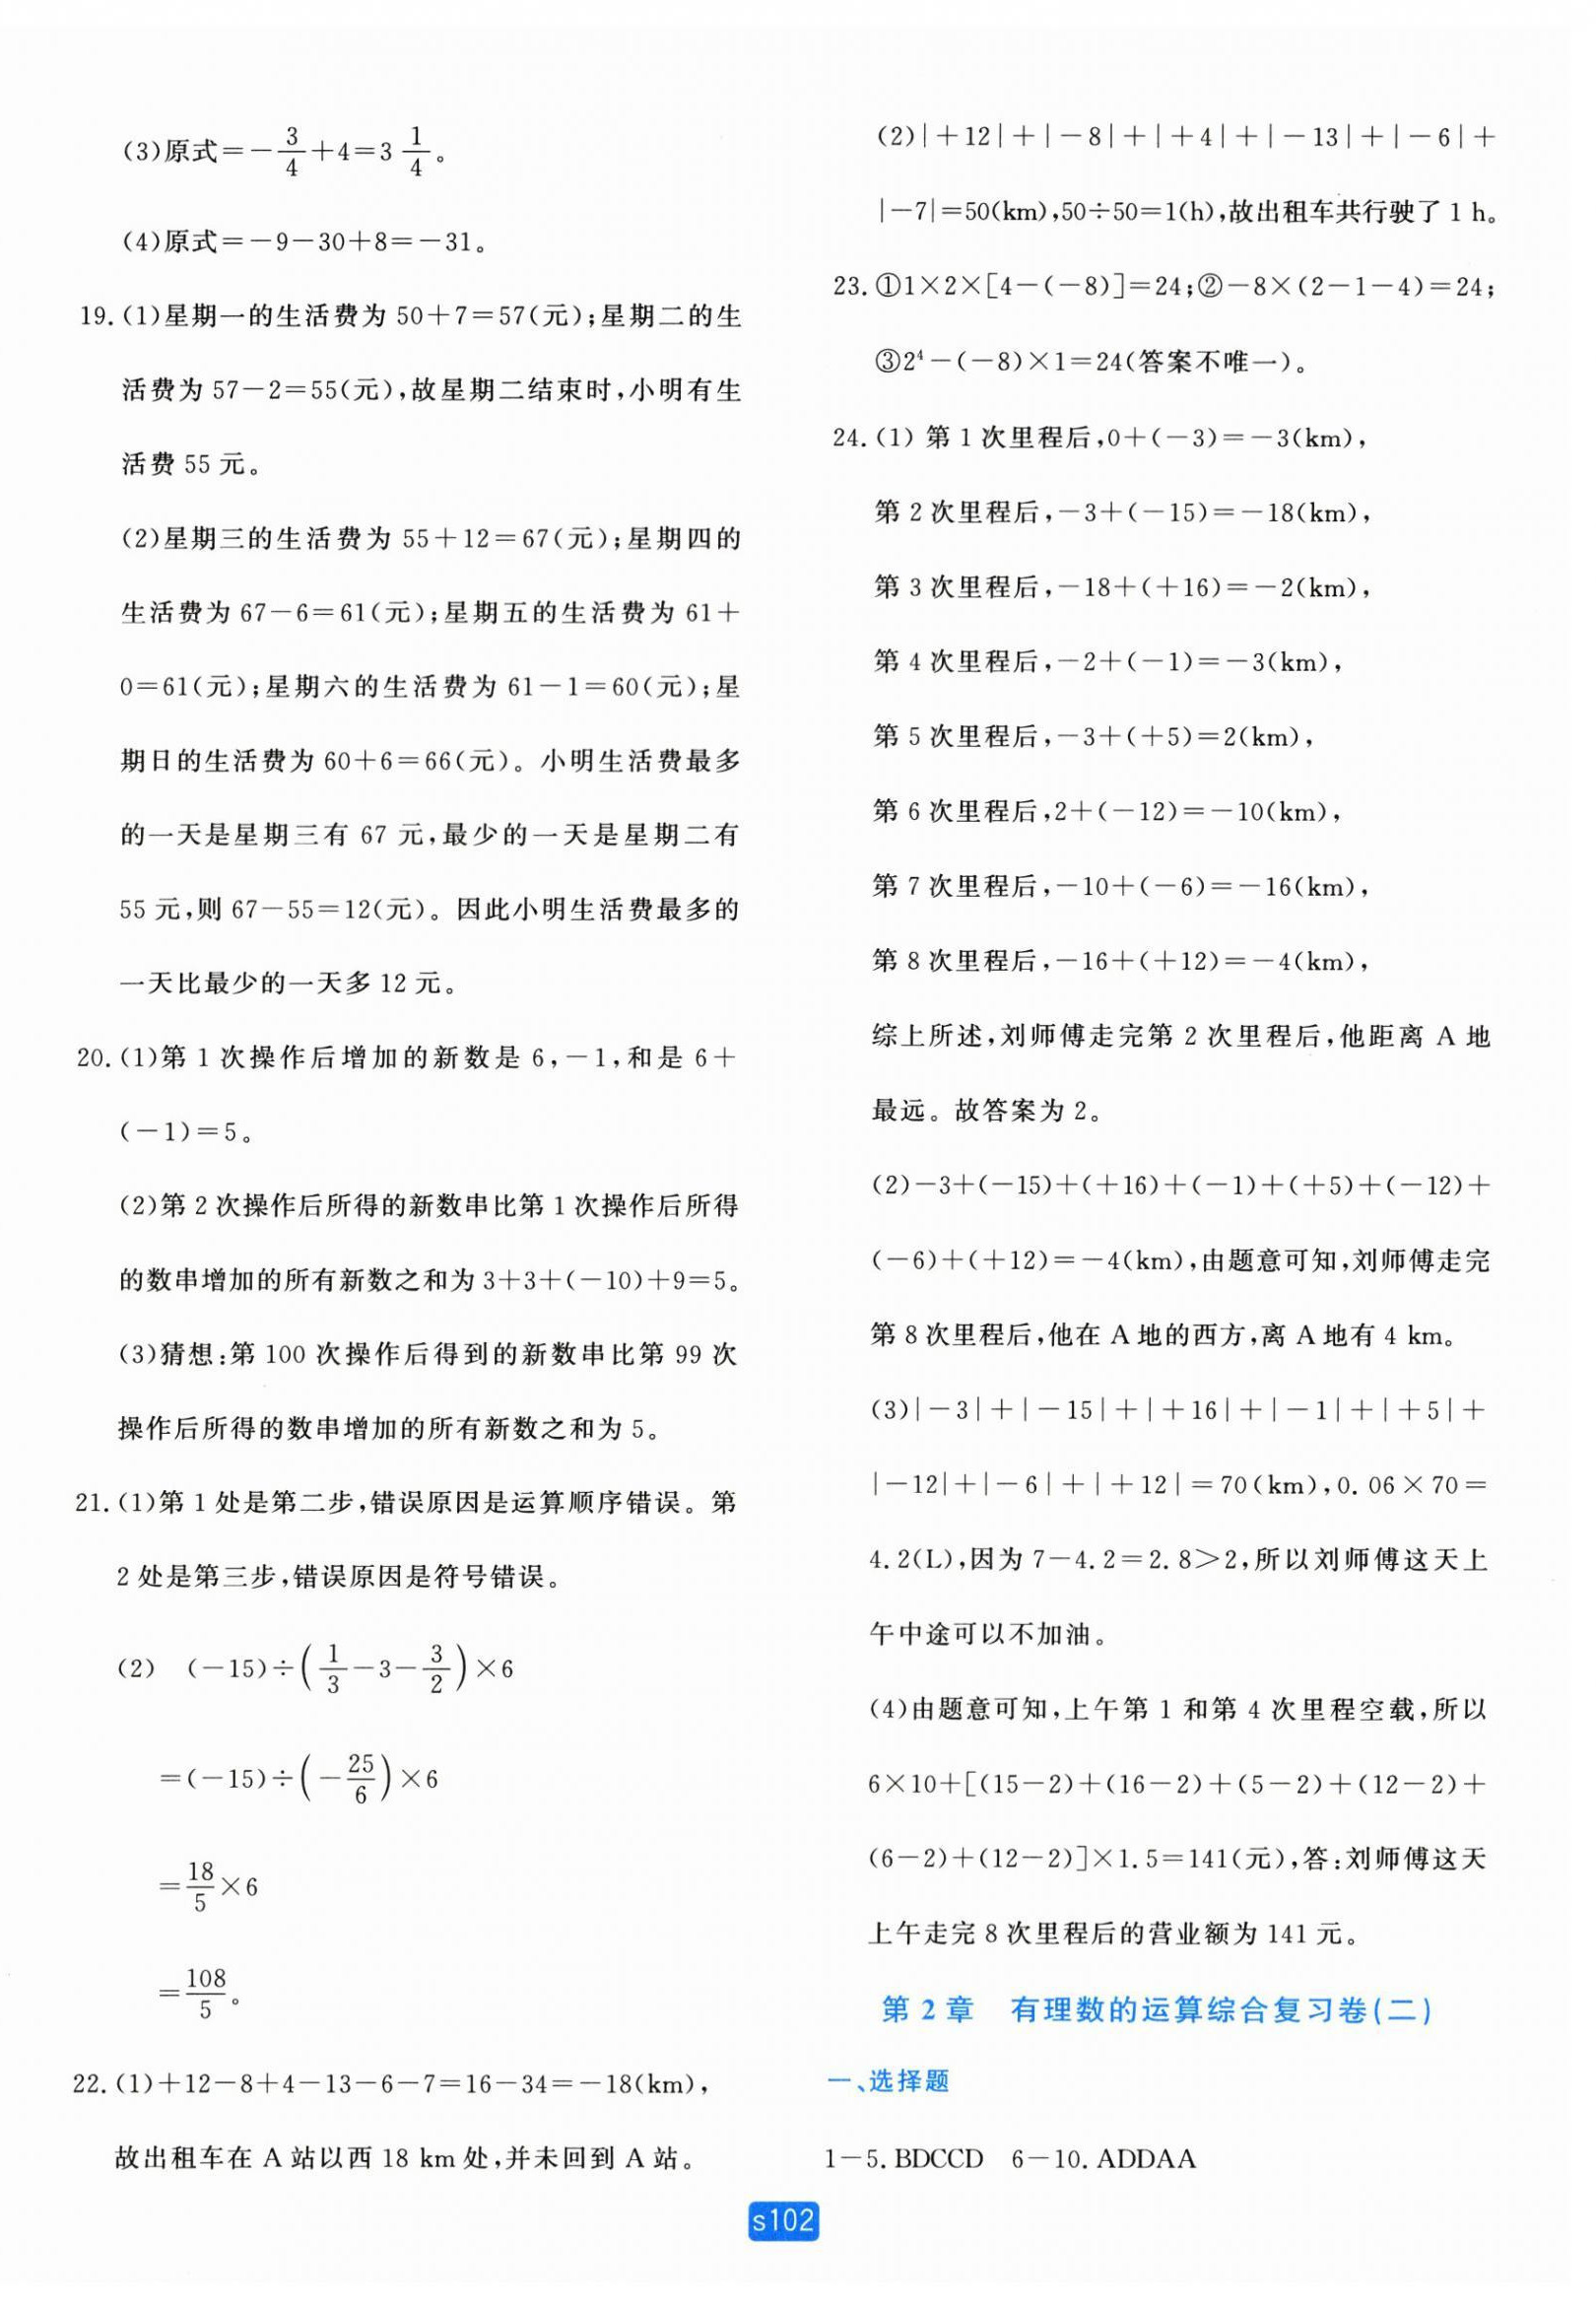 (3)原式=-3/4+4=3 1/4。
(4)原式=-9-30+8=-31。
19.(1)星期一的生活费为 50+7=57(元);星期二的生
活费为 57-2=55(元),故星期二结束时,小明有生
活费 55 元。
(2)星期三的生活费为 55+12=67(元);星期四的
生活费为 67-6=61(元);星期五的生活费为 61+
0=61(元);星期六的生活费为 61-1=60(元);星
期日的生活费为 60+6=66(元)。小明生活费最多
的一天是星期三有 67 元,最少的一天是星期二有
55 元,则 67-55=12(元)。因此小明生活费最多的
一天比最少的一天多 12 元。
20.(1)第 1 次操作后增加的新数是 6,-1,和是 6+
(-1)=5。
(2)第 2 次操作后所得的新数串比第 1 次操作后所得
的数串增加的所有新数之和为 3+3+(-10)+9=5。
(3)猜想:第 100 次操作后得到的新数串比第 99 次
操作后所得的数串增加的所有新数之和为 5。
21.(1)第 1 处是第二步,错误原因是运算顺序错误。第
2 处是第三步,错误原因是符号错误。
(2) (-15)÷(1/3-3-3/2)×6
=(-15)÷(-25/6)×6
=18/5×6
=108/5。
22.(1)+12-8+4-13-6-7=16-34=-18(km),
故出租车在 A 站以西 18 km 处,并未回到 A 站。
(2)|+12|+|-8|+|+4|+|-13|+|-6|+
|-7|=50(km),50÷50=1(h),故出租车共行驶了 1 h。
23.①1×2×[4-(-8)]=24;②-8×(2-1-4)=24;
③2⁴-(-8)×1=24(答案不唯一)。
24.(1) 第 1 次里程后,0+(-3)=-3(km),
第 2 次里程后,-3+(-15)=-18(km),
第 3 次里程后,-18+(+16)=-2(km),
第 4 次里程后,-2+(-1)=-3(km),
第 5 次里程后,-3+(+5)=2(km),
第 6 次里程后,2+(-12)=-10(km),
第 7 次里程后,-10+(-6)=-16(km),
第 8 次里程后,-16+(+12)=-4(km),
综上所述,刘师傅走完第 2 次里程后,他距离 A 地
最远。故答案为 2。
(2)-3+(-15)+(+16)+(-1)+(+5)+(-12)+
(-6)+(+12)=-4(km),由题意可知,刘师傅走完
第 8 次里程后,他在 A 地的西方,离 A 地有 4 km。
(3)|-3|+|-15|+|+16|+|-1|+|+5|+
|-12|+|-6|+|+12|=70(km),0.06×70=
4.2(L),因为 7-4.2=2.8>2,所以刘师傅这天上
午中途可以不加油。
(4)由题意可知,上午第 1 和第 4 次里程空载,所以
6×10+[(15-2)+(16-2)+(5-2)+(12-2)+
(6-2)+(12-2)]×1.5=141(元),答:刘师傅这天
上午走完 8 次里程后的营业额为 141 元。
第 2 章 有理数的运算综合复习卷(二)
一、选择题
1-5. BDCCD 6-10. ADDAA
s102